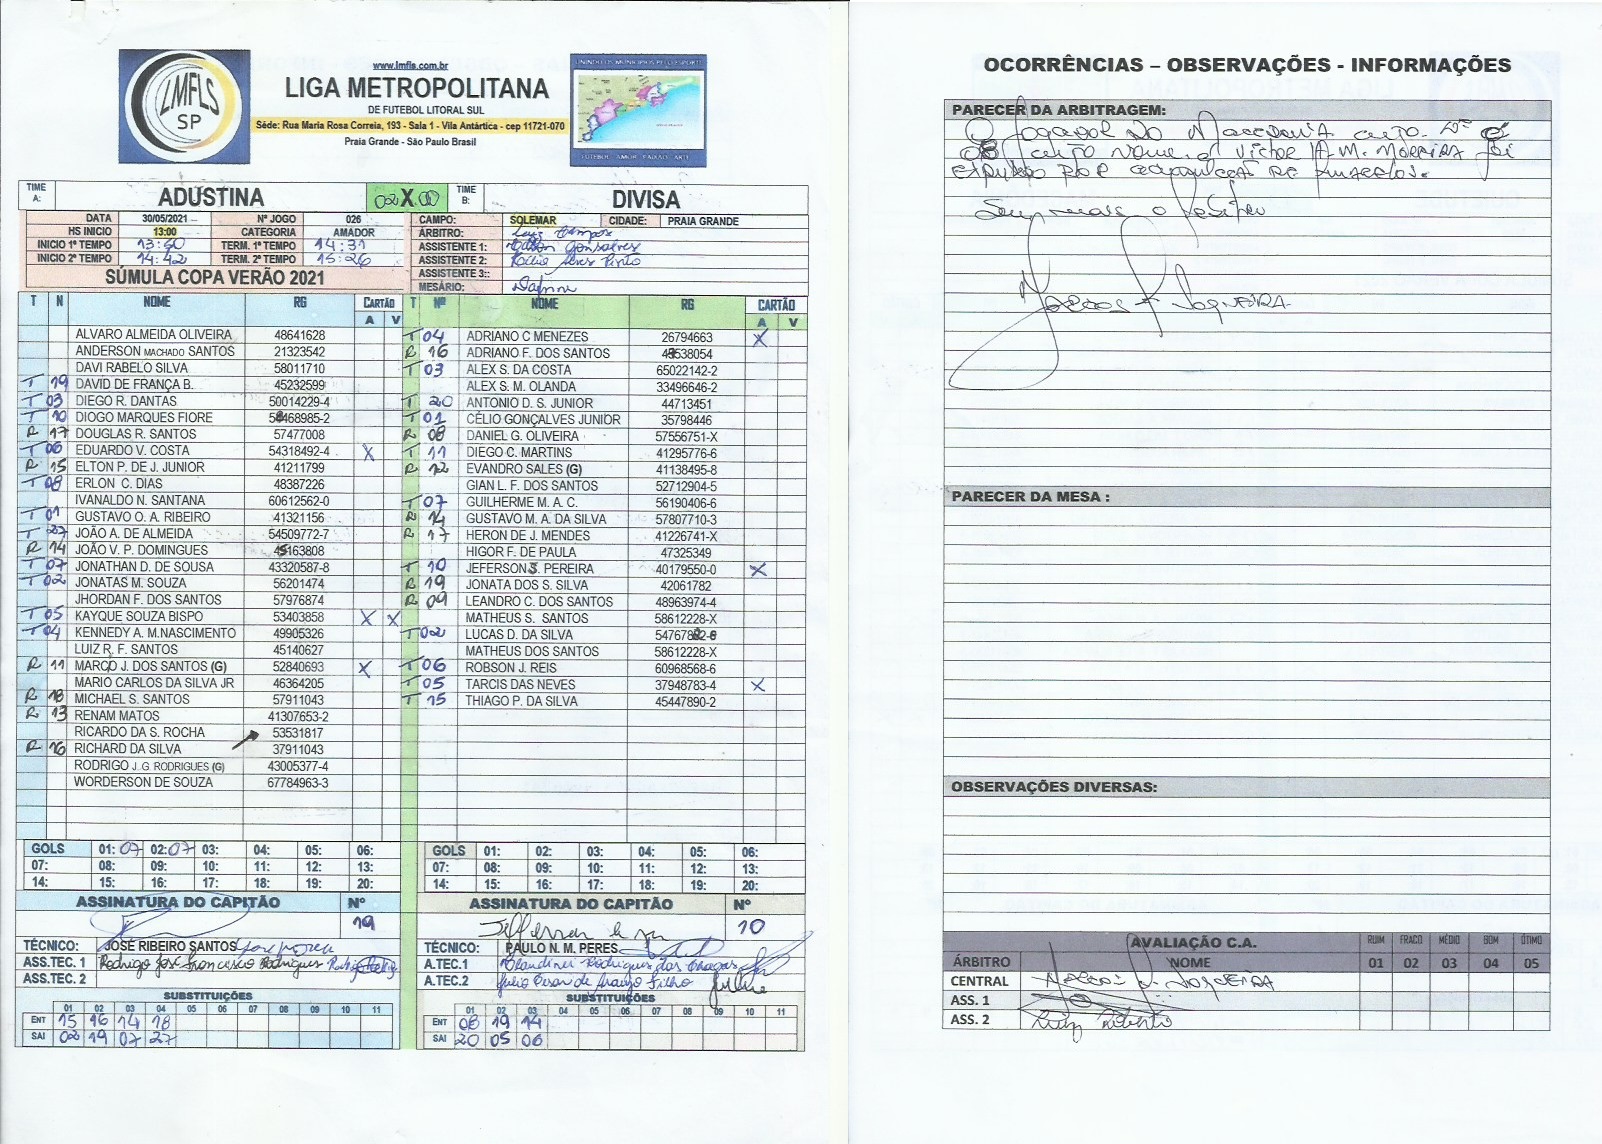 LMFLS
SP
www.lmfls.com.br
LIGA METROPOLITANA
DE FUTEBOL LITORAL SUL
Séde: Rua Maria Rosa Correia, 193 - Sala 1 - Vila Antártica - cep 11721-070
Praia Grande - São Paulo Brasil
TIME A: ADUSTINA 02 X 00 TIME B: DIVISA
DATA 30/05/2021 Nº JOGO 026 CAMPO: SOLEMAR CIDADE: PRAIA GRANDE
HS INICIO 13:00 CATEGORIA AMADOR ÁRBITRO: Luiz Campos
INICIO 1º TEMPO 13:50 TERM. 1º TEMPO 14:31 ASSISTENTE 1: Edson Gonsalves
INICIO 2º TEMPO 14:42 TERM. 2º TEMPO 15:26 ASSISTENTE 2:
SÚMULA COPA VERÃO 2021 ASSISTENTE 3::
MESÁRIO:
T N NOME RG CARTÃO T Nº NOME RG CARTÃO
A V A V
ALVARO ALMEIDA OLIVEIRA 48641628 T 04 ADRIANO C MENEZES 26794663 X
ANDERSON MACHADO SANTOS 21323542 R 16 ADRIANO F. DOS SANTOS 48538054
DAVI RABELO SILVA 58011710 T 03 ALEX S. DA COSTA 65022142-2
T 19 DAVID DE FRANÇA B. 45232599 ALEX S. M. OLANDA 33496646-2
T 03 DIEGO R. DANTAS 50014229-4 T 20 ANTONIO D. S. JUNIOR 44713451
T 10 DIOGO MARQUES FIORE 58468985-2 T 01 CÉLIO GONÇALVES JUNIOR 35798446
R 17 DOUGLAS R. SANTOS 57477008 R 08 DANIEL G. OLIVEIRA 57556751-X
T 06 EDUARDO V. COSTA 54318492-4 X T 11 DIEGO C. MARTINS 41295776-6
R 15 ELTON P. DE J. JUNIOR 41211799 R 12 EVANDRO SALES (G) 41138495-8
T 08 ERLON C. DIAS 48387226 GIAN L. F. DOS SANTOS 52712904-5
IVANALDO N. SANTANA 60612562-0 T 07 GUILHERME M. A. C. 56190406-6
T 01 GUSTAVO O. A. RIBEIRO 41321156 R 14 GUSTAVO M. A. DA SILVA 57807710-3
T 27 JOÃO A. DE ALMEIDA 54509772-7 R 17 HERON DE J. MENDES 41226741-X
R 14 JOÃO V. P. DOMINGUES 45163808 HIGOR F. DE PAULA 47325349
T 07 JONATHAN D. DE SOUSA 43320587-8 T 10 JEFERSON S. PEREIRA 40179550-0 X
T 02 JONATAS M. SOUZA 56201474 R 19 JONATA DOS S. SILVA 42061782
JHORDAN F. DOS SANTOS 57976874 R 09 LEANDRO C. DOS SANTOS 48963974-4
T 05 KAYQUE SOUZA BISPO 53403858 X X MATHEUS S. SANTOS 58612228-X
T 04 KENNEDY A. M.NASCIMENTO 49905326 T 02 LUCAS D. DA SILVA
LUIZ R. F. SANTOS 45140627 MATHEUS DOS SANTOS 58612228-X
R 11 MARCO J. DOS SANTOS (G) 52840693 X T 06 ROBSON J. REIS 60968568-6
MARIO CARLOS DA SILVA JR 46364205 T 05 TARCIS DAS NEVES 37948783-4 X
R 18 MICHAEL S. SANTOS 57911043 T 15 THIAGO P. DA SILVA 45447890-2
R 13 RENAM MATOS 41307653-2
RICARDO DA S. ROCHA 53531817
R 16 RICHARD DA SILVA 37911043
RODRIGO J. G. RODRIGUES (G) 43005377-4
WORDERSON DE SOUZA 67784963-3
GOLS 01: 07 02: 07 03: 04: 05: 06: GOLS 01: 02: 03: 04: 05: 06:
07: 08: 09: 10: 11: 12: 13: 07: 08: 09: 10: 11: 12: 13:
14: 15: 16: 17: 18: 19: 20: 14: 15: 16: 17: 18: 19: 20:
ASSINATURA DO CAPITÃO Nº ASSINATURA DO CAPITÃO Nº
19 10
TÉCNICO: JOSÉ RIBEIRO SANTOS TÉCNICO: PAULO N. M. PERES
ASS.TEC. 1 Rodrigo José Francesco Rodrigues A.TEC.1 Claudinei Rodrigues das Chagas
ASS.TEC. 2 A.TEC.2 Julio Cesar de Araujo Filho
SUBSTITUIÇÕES SUBSTITUIÇÕES
01 02 03 04 05 06 07 08 09 10 11 01 02 03 04 05 06 07 08 09 10 11
ENT 15 16 14 18 ENT 08 19 14
SAI 02 19 07 27 SAI 20 05 06
OCORRÊNCIAS – OBSERVAÇÕES - INFORMAÇÕES
PARECER DA ARBITRAGEM:
O Jogador do
nome Victor A. M. Moreira foi
expulso por
Sem mais o
Nogueira
PARECER DA MESA :
OBSERVAÇÕES DIVERSAS:
AVALIAÇÃO C.A. RUIM FRACO MÉDIO BOM ÓTIMO
ÁRBITRO NOME 01 02 03 04 05
CENTRAL Nogueira
ASS. 1
ASS. 2 Luiz Roberto